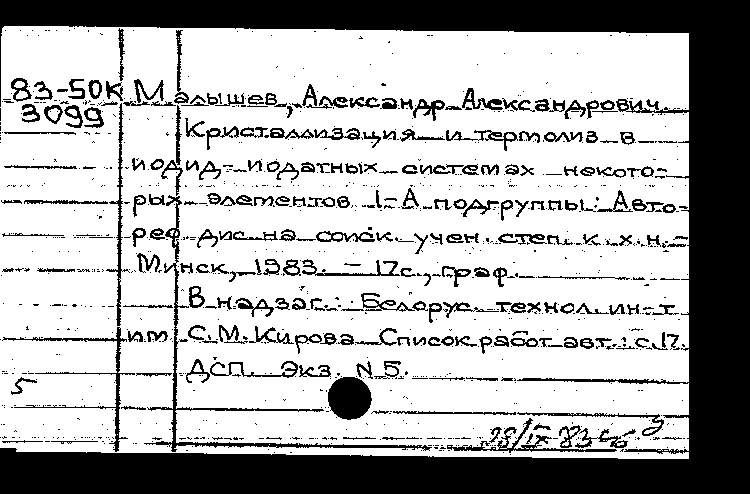 83-50К Малышев, Александр Александрович.
3099
Кристаллизация и термолиз в
иодид-иодатных системах некото-
рых элементов I-А подгруппы: Авто-
реф дис на соиск. учен. степ. к. х. н. -
Минск, 1983. - 17с., граф.
В надзаг.: Белорус. технол. ин-т
им С. М. Кирова Список работ авт.: с. 17.
ДСП. Экз. N 5.
5
28/IX 83